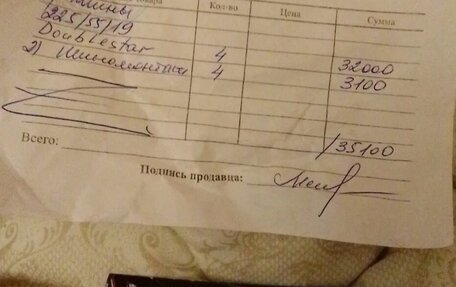 товара Кол-во Цена Сумма
шины
225/55/19
Doublestar 4 32000
2) Шиномонтаж 4 3100
35100
Всего:
Подпись продавца: